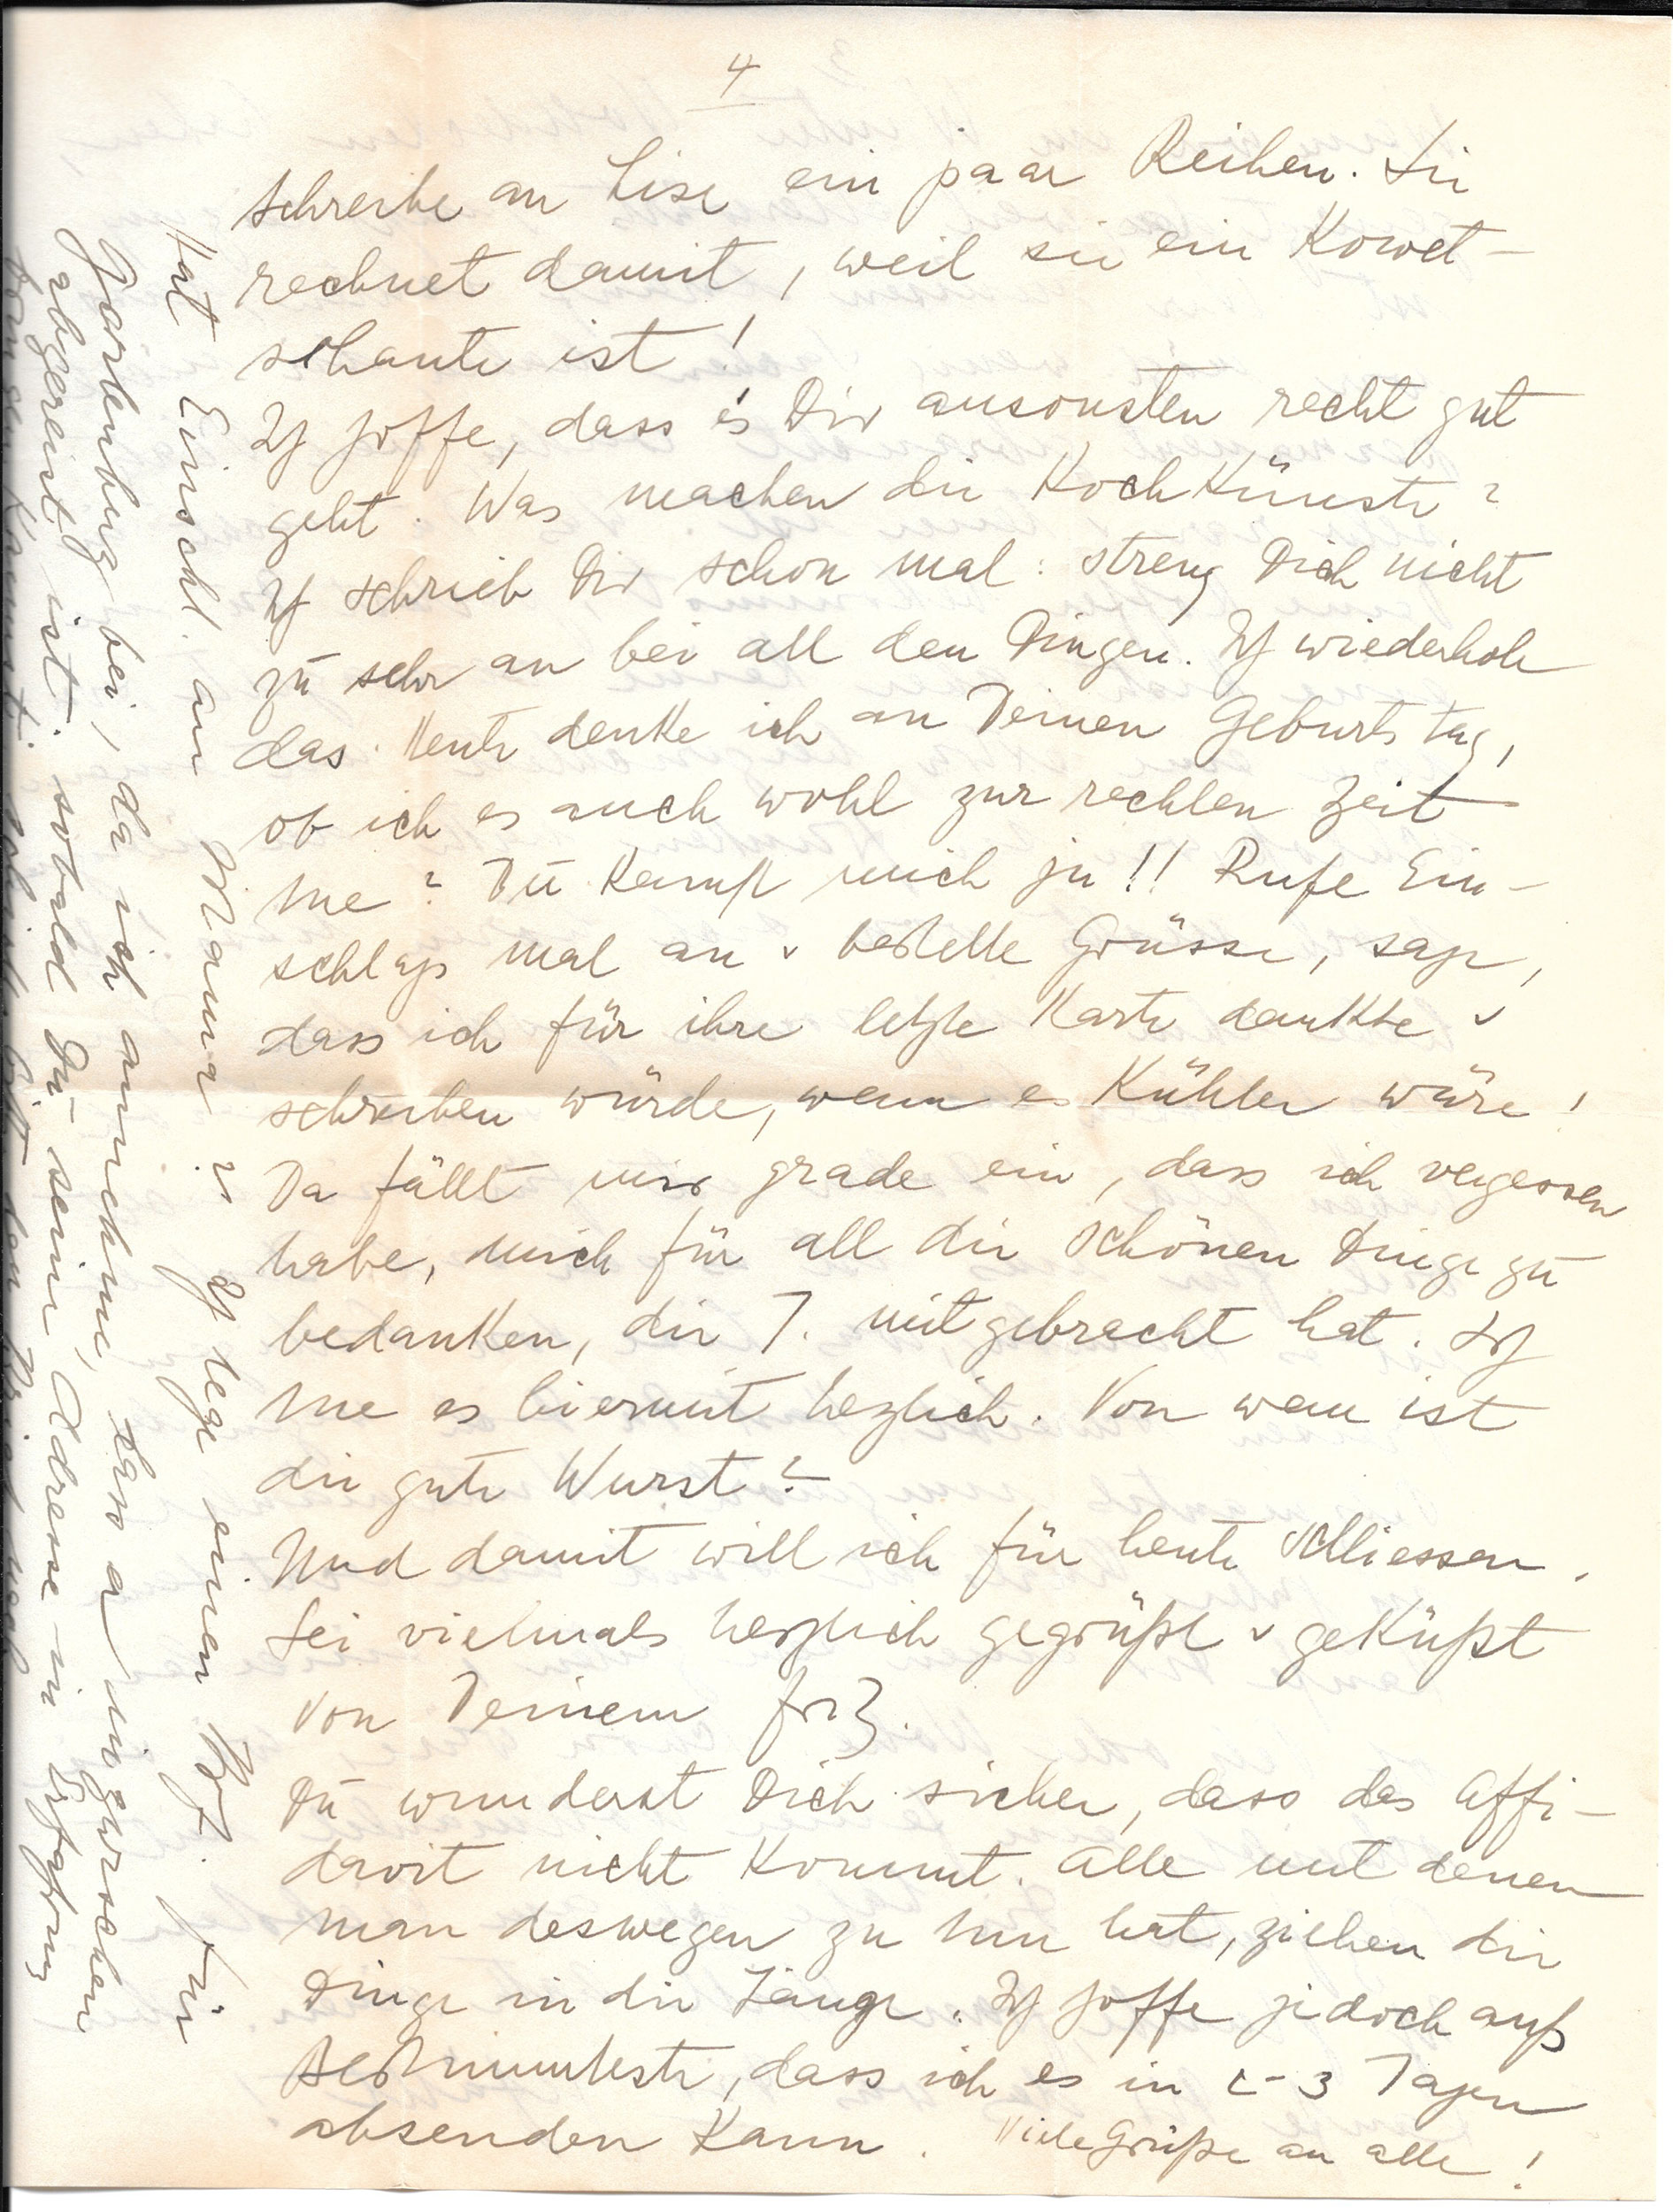 4
schreibe an Lise ein paar Reihen. Sie
rechnet damit, weil sie ein Kowet-
schante ist!
Ich hoffe, dass es Dir ansonsten recht gut
geht. Was machen die Kochkünste?
Ich schrieb Dir schon mal: streng Dich nicht
zu sehr an bei all den Dingen. Ich wiederhole
das. Heute denke ich an Deinen Geburtstag,
ob ich es auch wohl zur rechten Zeit
tue? Du kennst mich ja!! Rufe Ein-
schlags mal an u bestelle Grüsse, sage,
dass ich für ihre letzte Karte dankte u
schreiben würde, wenn es kühler wäre!
Da fällt mir grade ein, dass ich vergessen
habe, mich für all die schönen Dinge zu
bedanken, die T. mitgebracht hat. Ich
tue es hiermit herzlich. Von wem ist
die gute Wurst?
Und damit will ich für heute schliessen.
Sei vielmals herzlich gegrüßt u geküßt
von Deinem Fritz.
Du wunderst Dich sicher, dass das Affi-
davit nicht kommt. Alle mit denen
man deswegen zu tun hat, ziehen die
Dinge in die Länge. Ich hoffe jedoch aufs
Bestimmteste, dass ich es in 2-3 Tagen
absenden kann. Viele Grüße an alle!
hat Einschl. an Mama? Ich lege einen Bf. für
Gartenberg bei, da ich annehme, dass er inzwischen
abgereist ist. sobald Du seine Adresse in Erfahrung